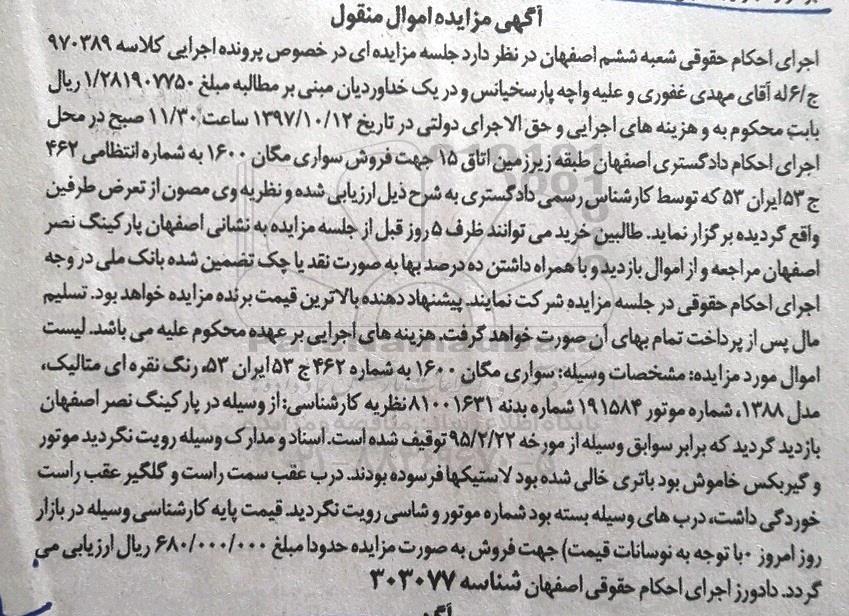 آگهی مزایده اموال منقول
اجرای احکام حقوقی شعبه ششم اصفهان در نظر دارد جلسه مزایده ای در خصوص پرونده اجرایی کلاسه ۹۷۰۳۸۹
ج/۶ له آقای مهدی غفوری و علیه واچه پارسخیانس و در یک خداوردیان مبنی بر مطالبه مبلغ ۱/۲۸۱۹۰۷۷۵۰ ریال
بابت محکوم به و هزینه های اجرایی و حق الاجرای دولتی در تاریخ ۱۳۹۷/۱۰/۱۲ ساعت ۱۱/۳۰ صبح در محل
اجرای احکام دادگستری اصفهان طبقه زیرزمین اتاق ۱۵ جهت فروش سواری مگان ۱۶۰۰ به شماره انتظامی ۴۶۲
ج ۵۳ ایران ۵۳ که توسط کارشناس رسمی دادگستری به شرح ذیل ارزیابی شده و نظریه وی مصون از تعرض طرفین
واقع گردیده برگزار نماید. طالبین خرید می توانند ظرف ۵ روز قبل از جلسه مزایده به نشانی اصفهان پارکینگ نصر
اصفهان مراجعه و از اموال بازدید و با همراه داشتن ده درصد بها به صورت نقد یا چک تضمین شده بانک ملی در وجه
اجرای احکام حقوقی در جلسه مزایده شرکت نمایند. پیشنهاد دهنده بالاترین قیمت برنده مزایده خواهد بود. تسلیم
مال پس از پرداخت تمام بهای آن صورت خواهد گرفت. هزینه های اجرایی بر عهده محکوم علیه می باشد. لیست
اموال مورد مزایده: مشخصات وسیله: سواری مگان ۱۶۰۰ به شماره ۴۶۲ ج ۵۳ ایران ۵۳، رنگ نقره ای متالیک،
مدل ۱۳۸۸، شماره موتور ۱۹۱۵۸۴ شماره بدنه ۸۱۰۰۱۶۳۱ نظریه کارشناسی: از وسیله در پارکینگ نصر اصفهان
بازدید گردید که برابر سوابق وسیله از مورخه ۹۵/۲/۲۲ توقیف شده است. اسناد و مدارک وسیله رویت نگردید موتور
و گیربکس خاموش بود باتری خالی شده بود لاستیکها فرسوده بودند. درب عقب سمت راست و گلگیر عقب راست
خوردگی داشت، درب های وسیله بسته بود شماره موتور و شاسی رویت نگردید. قیمت پایه کارشناسی وسیله در بازار
روز امروز ۰با توجه به نوسانات قیمت) جهت فروش به صورت مزایده حدودا مبلغ ۶۸۰/۰۰۰/۰۰۰ ریال ارزیابی می
گردد. دادورز اجرای احکام حقوقی اصفهان شناسه ۳۰۳۰۷۷